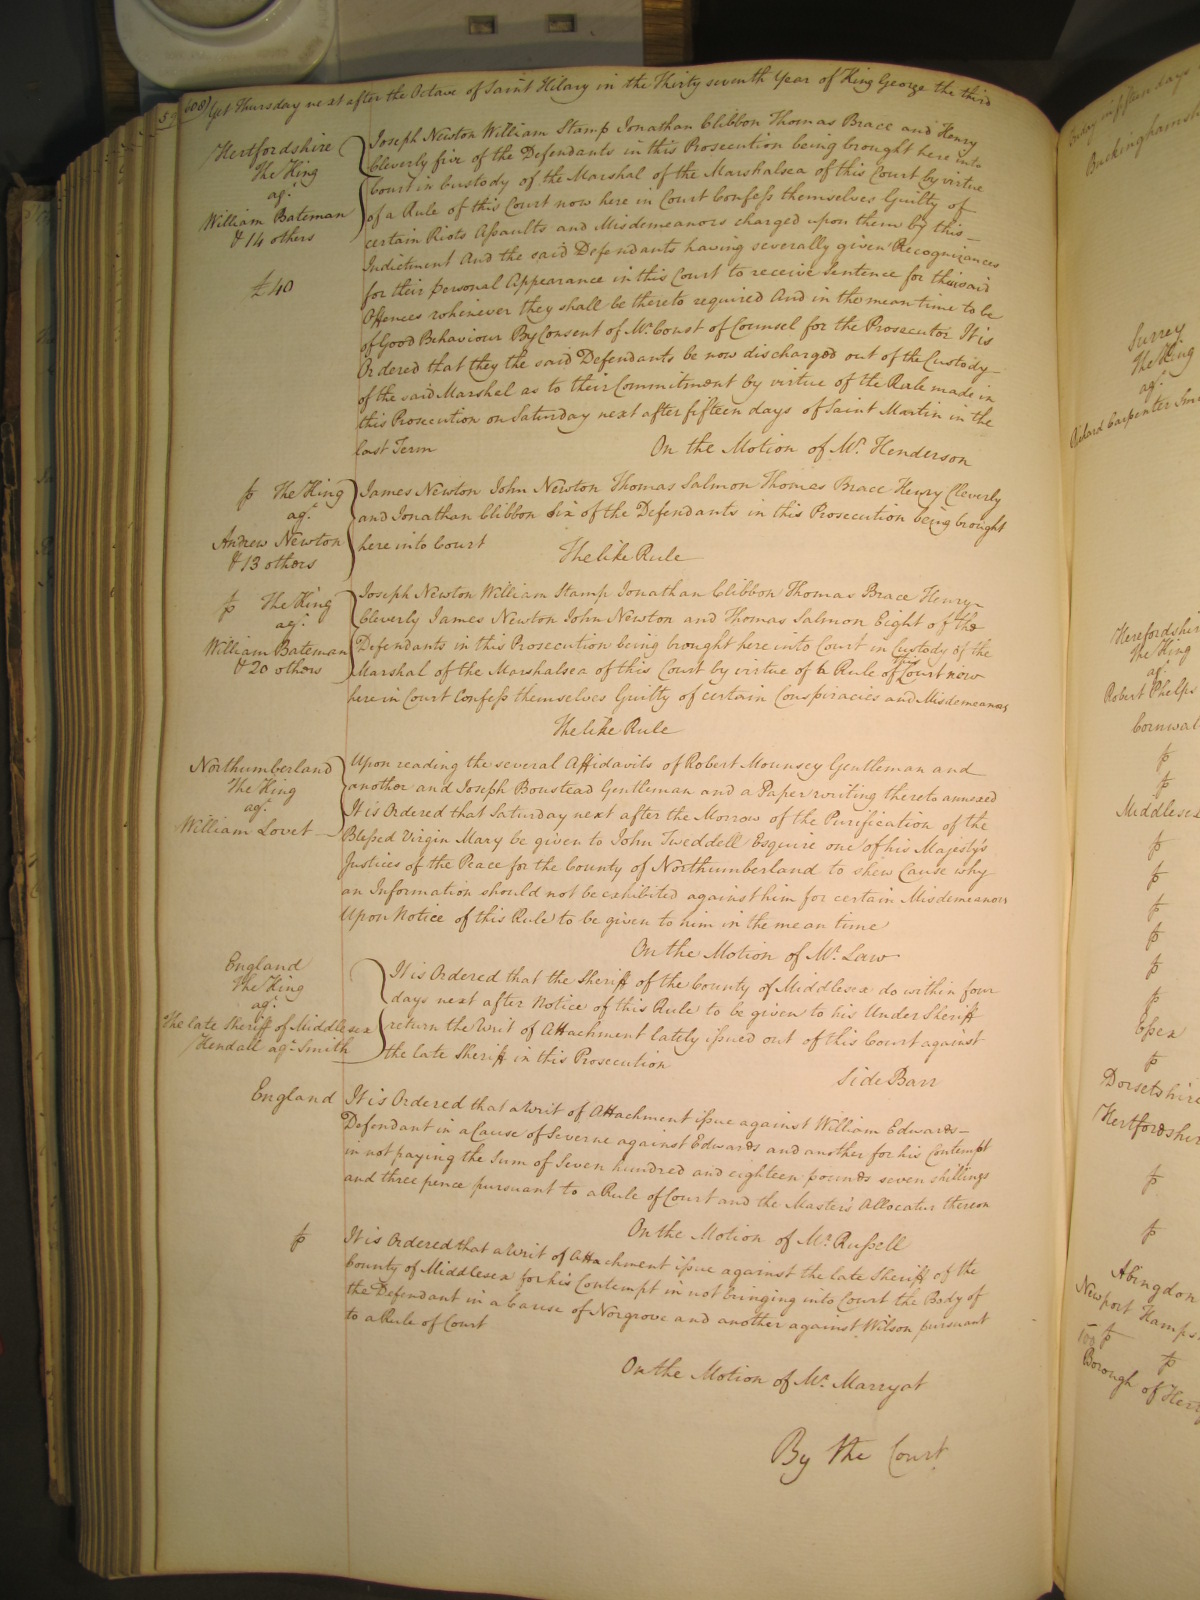 608) Yet Thursday next after the Octave of Saint Hilary in the Thirty seventh Year of King George the third
Hertfordshire
The King
agt.
William Bateman
& 14 others
£40
Joseph Newton William Stamp Jonathan Clibbon Thomas Brace and Henry
Cleverly five of the Defendants in this Prosecution being brought here into
Court in Custody of the Marshal of the Marshalsea of this Court by virtue
of a Rule of this Court now here in Court Confess themselves Guilty of
certain Riots Assaults and Misdemeanors charged upon them by this
Indictment And the said Defendants having severally given Recognizances
for their personal Appearance in this Court to receive Sentence for their said
Offences whenever they shall be thereto required And in the mean time to be
of Good Behaviour By Consent of Mr. Const of Counsel for the Prosecutor It is
Ordered that they the said Defendants be now discharged out of the Custody
of the said Marshal as to their Commitment by virtue of the Rule made in
this Prosecution on Saturday next after fifteen days of Saint Martin in the
last Term
On the Motion of Mr. Henderson
The King
agt.
Andrew Newton
& 13 others
James Newton John Newton Thomas Salmon Thomas Brace Henry Cleverly
and Jonathan Clibbon Six of the Defendants in this Prosecution being brought
here into Court
The like Rule
The King
agt.
William Bateman
& 20 others
Joseph Newton William Stamp Jonathan Clibbon Thomas Brace Henry
Cleverly James Newton John Newton and Thomas Salmon Eight of the
Defendants in this Prosecution being brought here into Court in Custody of the
Marshal of the Marshalsea of this Court by virtue of a Rule of this Court now
here in Court Confess themselves Guilty of certain Conspiracies and Misdemeanors
The like Rule
Northumberland
The King
agt.
William Lovet
Upon reading the several Affidavits of Robert Mounsey Gentleman and
another and Joseph Boustead Gentleman and a Paper writing thereto annexed
It is Ordered that Saturday next after the Morrow of the Purification of the
Blessed Virgin Mary be given to John Tweddell Esquire one of his Majesty's
Justices of the Peace for the County of Northumberland to shew Cause why
an Information should not be exhibited against him for certain Misdemeanors
Upon Notice of this Rule to be given to him in the mean time
On the Motion of Mr. Law
England
The King
agt.
The late Sheriff of Middlesex
Kendall agt. Smith
It is Ordered that the Sheriff of the County of Middlesex do within four
days next after Notice of this Rule to be given to his Under Sheriff
return the Writ of Attachment lately issued out of this Court against
the late Sheriff in this Prosecution
Side Barr
England
It is Ordered that a Writ of Attachment issue against William Edwards
Defendant in a Cause of Severne against Edwards and another for his Contempt
in not paying the Sum of Seven hundred and eighteen pounds seven shillings
and three pence pursuant to a Rule of Court and the Master's Allocatur thereon
On the Motion of Mr. Russell
It is Ordered that a Writ of Attachment issue against the late Sheriff of the
County of Middlesex for his Contempt in not bringing into Court the Body of
the Defendant in a Cause of Norgrove and another against Wilson pursuant
to a Rule of Court
On the Motion of Mr. Marryat
By the Court
Surrey
The King
agt.
The King
agt.
Robert Phelps
Essex
Dorsetshire
Abingdon
Borough of